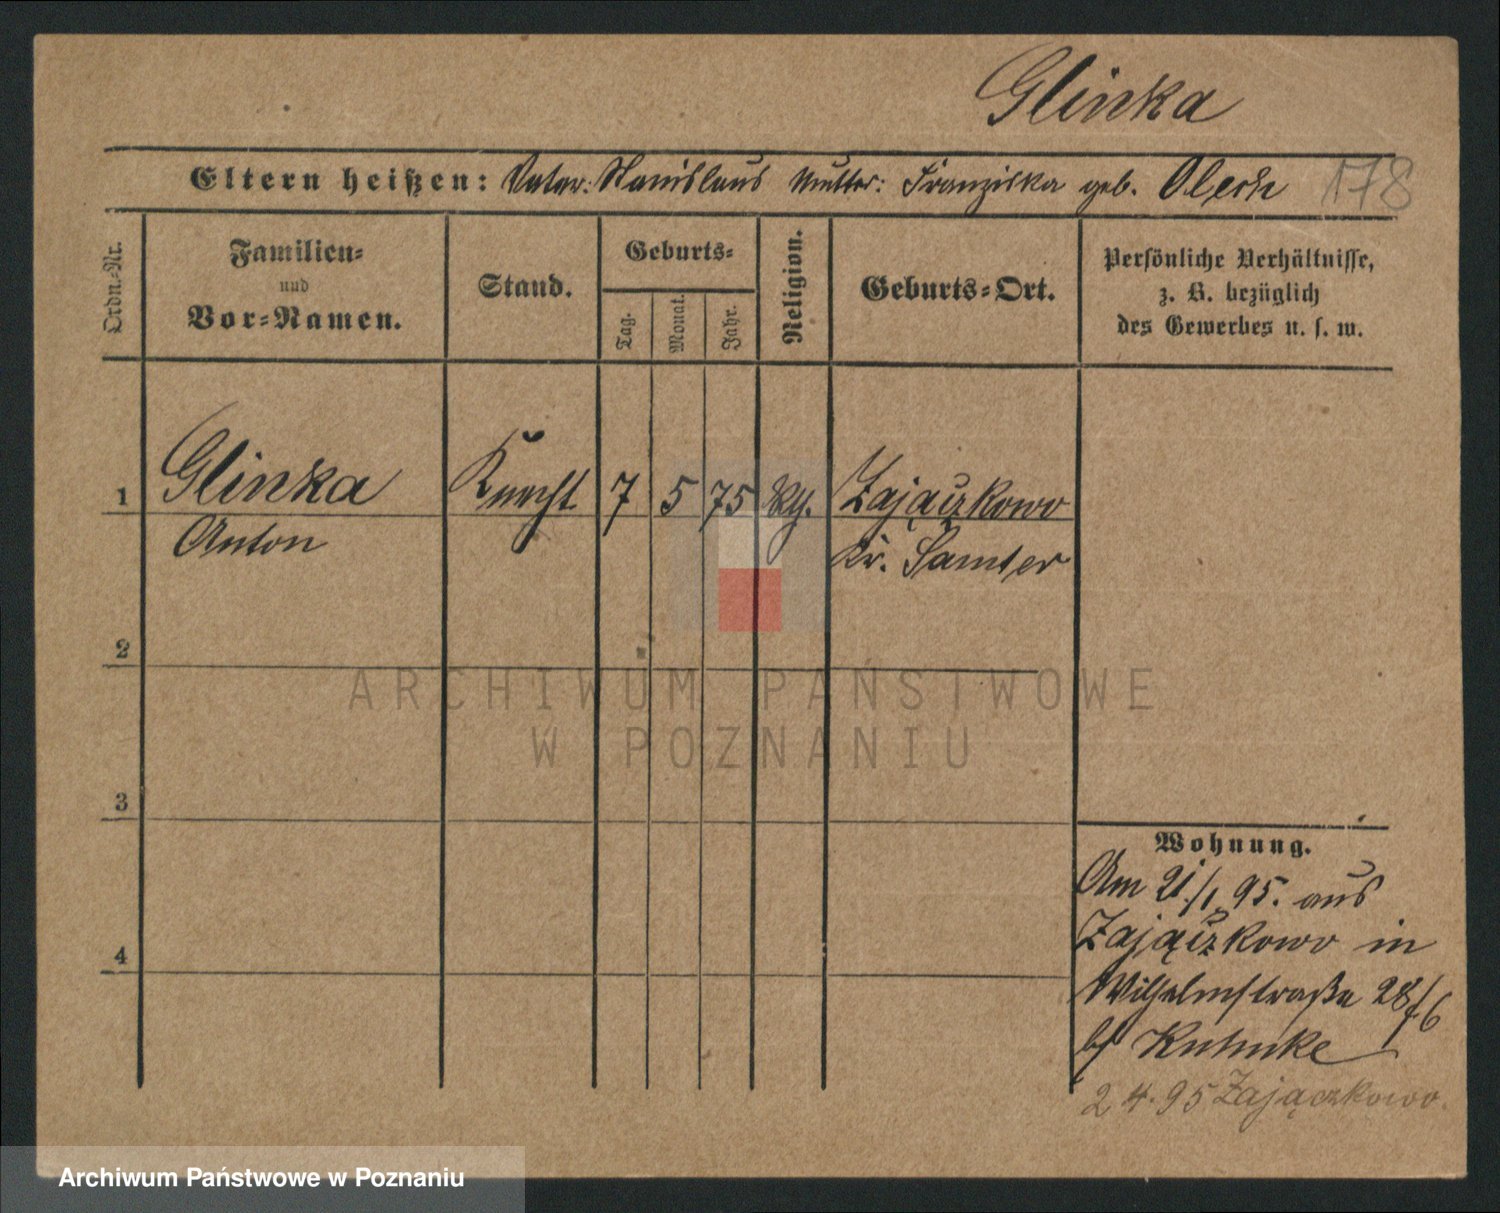 Glinka
Eltern heißen: Vater: Stanislaus Mutter: Franziska geb. Olech 178
Ordn.=Nr.
Familien=
und
Vor=Namen.
Stand.
Geburts=
Tag.
Monat.
Jahr.
Religion.
Geburts=Ort.
Persönliche Verhältnisse,
z. B. bezüglich
des Gewerbes u. s. w.
1 Glinka Knecht 7 5 75 Zajączkowo
Anton Kr. Samter
2
3
4
Wohnung.
Am 21./1. 95. aus
Zajączkowo in
Wilhelmstraße 28/
b/ Kuhnke
2 4. 95 Zajączkowo.
ARCHIWUM PAŃSTWOWE
W POZNANIU
Archiwum Państwowe w Poznaniu